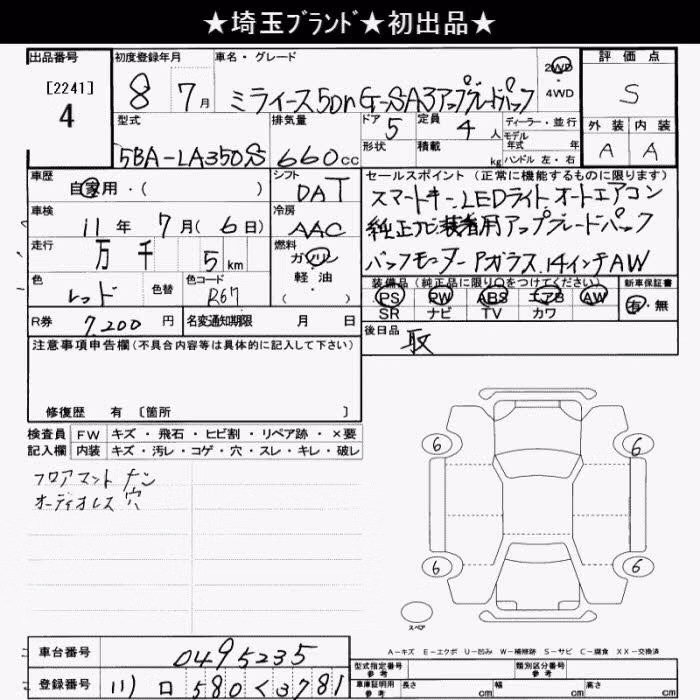 ★埼玉ﾌﾞﾗﾝﾄﾞ★初出品★
出品番号 初度登録年月 車名・グレード 評価点
[2241]
4
8 7月 ミライース5Dr G-SA3アップグレードパック 2WD・4WD S
型式 排気量 ドア 5 定員 4人 ディーラー・並行 外装 内装
モデル年式 年
5BA-LA350S 660cc 形状 積載 kg ハンドル 左・右 A A
車歴 自家用・( ) シフト DAT セールスポイント(正常に機能するものに限ります)
スマートキー.LEDライト オートエアコン
車検 11年 7月(6日) 冷房 AAC
純正ナビ装着用アップグレードパック
走行 万 千 5km 燃料 ガソリン・軽油・( )
バックモニター Pガラス.14インチAW
色 レッド 色替 色コード R67
装備品(純正品に限り○をつけてください) 新車保証書
PS PW ABS エアB AW 有・無
SR ナビ TV カワ
R券 7,200円 名変通知期限 月 日
後日品 取
注意事項申告欄(不具合内容等は具体的に記入して下さい)
修復歴 有 〔箇所 〕
検査員 FW キズ・飛石・ヒビ割・リペア跡・×要
記入欄 内装 キズ・汚レ・コゲ・穴・スレ・キレ・破レ
フロアマット ナシ
オーディオレス 穴
6 6
6 6
スペア
A－キズ E－エクボ U－凹み W－補修跡 S－サビ C－腐食 XX－交換済
車台番号 0495235
型式指定番号 参考 類別区分番号 参考
登録番号 川口 580 く 3781
車庫証明用 参考 長さ cm 幅 cm 高さ cm